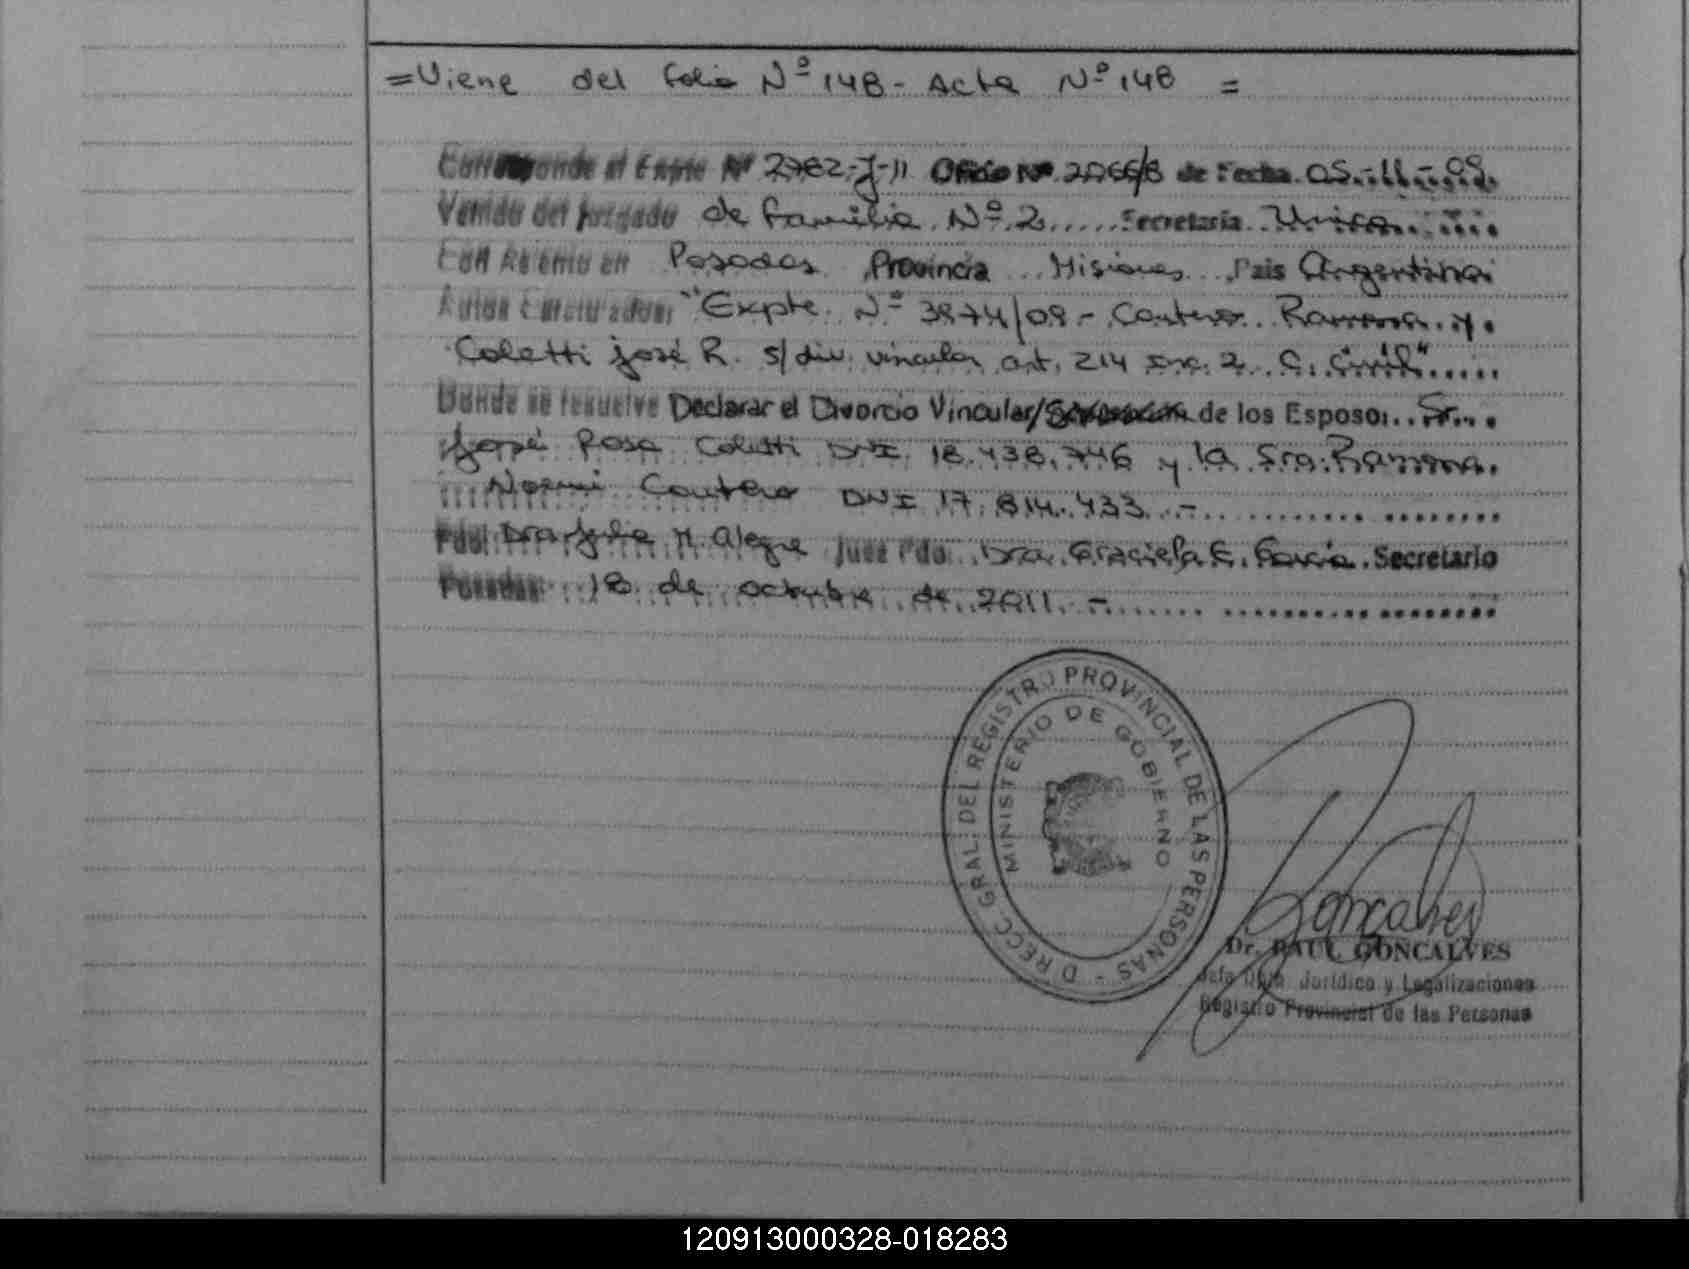 =Viene del folio Nº 148 - Acta Nº 148 =
Corresponde al Expte Nº 2782-J-11 Oficio Nº 2066/8 de Fecha 05-11-09
Venido del Juzgado de Familia Nº 2 Secretaría Unica
Con Asiento en Posadas Provincia Misiones Pais Argentina
Autos Caratulados: "Expte. Nº 3974/08.- Cantero Ramona y
Coletti josé R. s/ div. vincular art. 214 inc. 2 C. Civil"
Donde se resuelve Declarar el Divorcio Vincular/ de los Esposos Sr.
José Rosa Coletti DNI 18.438.746 y la Sra. Ramona
Noemi Cantero DNI 17.814.433.-
Fdo: Dra. Julia M. Alegre Juez Fdo. Dra. Graciela E. García Secretario
Posadas 18 de octubre de 2011.-
DIRECC. GRAL. DEL REGISTRO PROVINCIAL DE LAS PERSONAS -
MINISTERIO DE GOBIERNO
Goncalves
Dr. RAUL GONCALVES
Jefe Dpto. Jurídico y Legalizaciones
Registro Provincial de las Personas
120913000328-018283